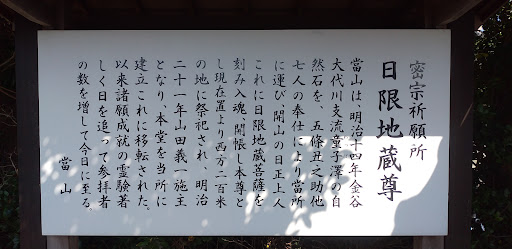 密宗祈願所
日限地蔵尊
當山は、明治十四年金谷
大代川支流童子澤の自
然石を、五條丑之助他
七人の奉仕により當所
に運び、開山の日正上人
これに日限地蔵菩薩を
刻み入魂、開帳し本尊と
し現在置より西方二百米
の地に祭祀され、明治
二十一年山田義一施主
となり、本堂を當所に
建立これに移転された。
以来諸願成就の霊験著
しく日を追って参拝者
の数を増して今日に至る。
當山